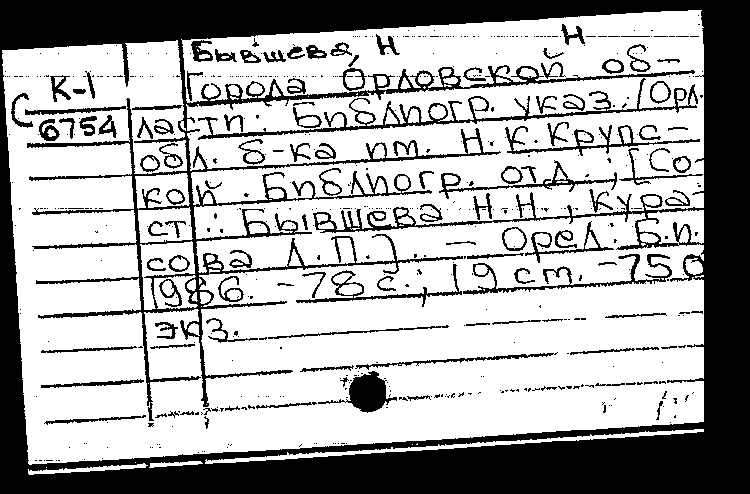 Бывшева, Н Н
К-1
Города Орловской об-
С 6754
ласти: Библиогр. указ./Орл.
обл. б-ка им. Н.К.Крупс-
кой. Библиогр. отд.; [Со-
ст.: Бывшева Н.Н., Кура-
сова Л.П.]. - Орел: Б.и.
1986. - 78 с.; 19 см. - 750
экз.